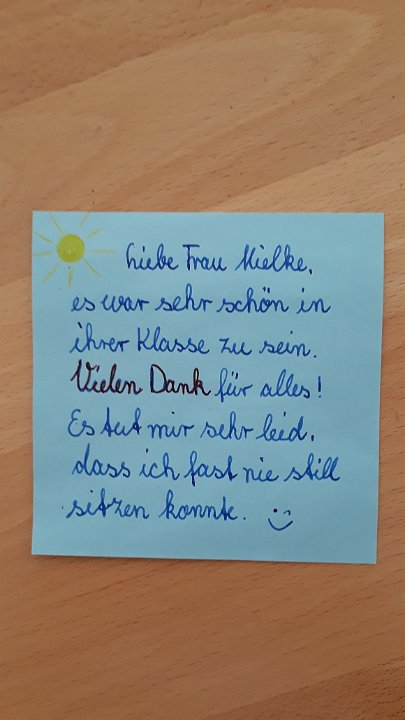 Liebe Frau Mielke,
es war sehr schön in
ihrer Klasse zu sein.
Vielen Dank für alles!
Es tut mir sehr leid,
dass ich fast nie still
sitzen konnte.